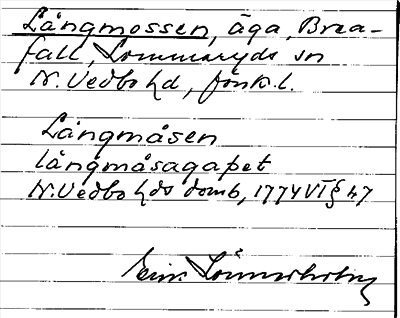 Långmossen, äga, Brea-
fall, Lommaryds sn
N. Vedbo hd, Jönk. l.
Långmåsen
långmåsagapet
N. Vedbo hds domb, 1774 VI § 47
Erik